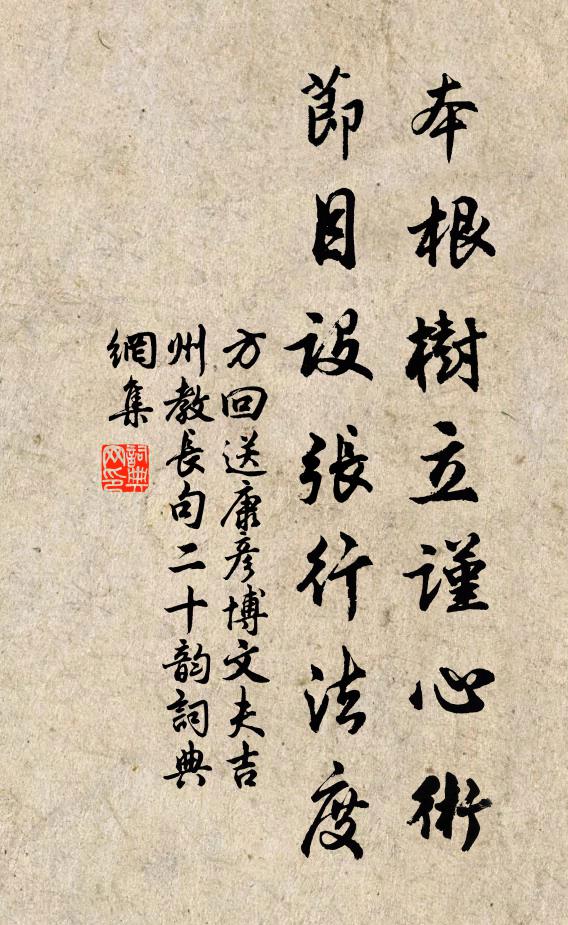 本根樹立謹心術
節目設張行法度
方回送康彥博文夫吉
州教長句二十韵詞典
網集
詞典
网印